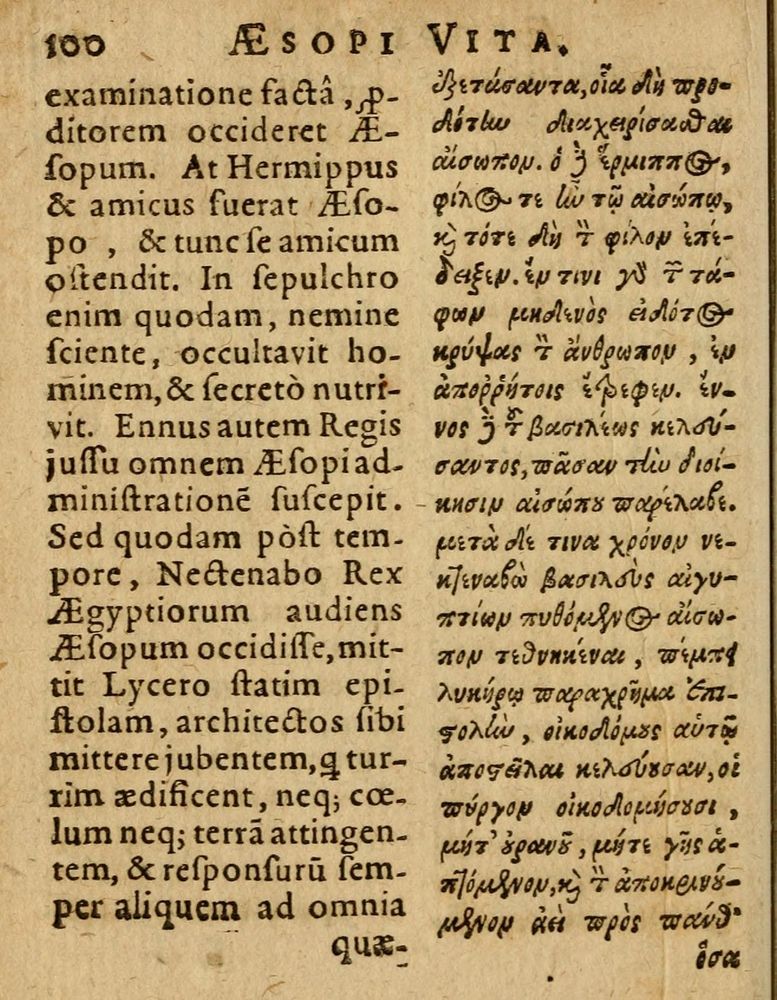 100 ÆSOPI VITA.
examinatione factâ, ꝓ-
ditorem occideret Æ-
ſopum. At Hermippus
& amicus fuerat Æſo-
po, & tunc ſe amicum
oſtendit. In ſepulchro
enim quodam, nemine
ſciente, occultavit ho-
minem, & ſecretò nutri-
vit. Ennus autem Regis
juſſu omnem Æſopi ad-
miniſtrationẽ ſuſcepit.
Sed quodam pòſt tem-
pore, Nectenabo Rex
Ægyptiorum audiens
Æſopum occidiſſe, mit-
tit Lycero ſtatim epi-
ſtolam, architectos ſibi
mittere jubentem, q tur-
rim ædificent, neq; cœ-
lum neq; terrã attingen-
tem, & reſponſurũ ſem-
per aliquem ad omnia
quæ-
ἐξετάσαντα, οἷα δὴ προ-
δότην διαχειρίσασθαι
αἴσωπον. ὁ δὲ ἕρμιππος,
φίλος τε ὢν τῷ αἰσώπῳ,
καὶ τότε δὴ τὸν φίλον ἐπέ-
δειξεν. ἔν τινι γὰρ τῶν τά-
φων μηδενὸς εἰδότος
κρύψας τὸν ἄνθρωπον, ἐν
ἀποῤῥήτοις ἔτρεφεν. ἔν-
νος δὲ τοῦ βασιλέως κελεύ-
σαντος, πᾶσαν τὴν διοί-
κησιν αἰσώπου παρέλαβε.
μετὰ δέ τινα χρόνον νε-
κτεναβὼ βασιλεὺς αἰγυ-
πτίων πυθόμενος αἴσω-
πον τεθνηκέναι, πέμπει
λυκήρῳ παραχρῆμα ἐπι-
στολὴν, οἰκοδόμους αὑτῷ
ἀποστεῖλαι κελεύουσαν, οἳ
πύργον οἰκοδομήσουσι,
μήτ' οὐρανοῦ, μήτε γῆς ἁ-
πτόμενον, καὶ τὸν ἀποκρινού-
μενον ἀεὶ πρὸς πάνθ'
ὅσα